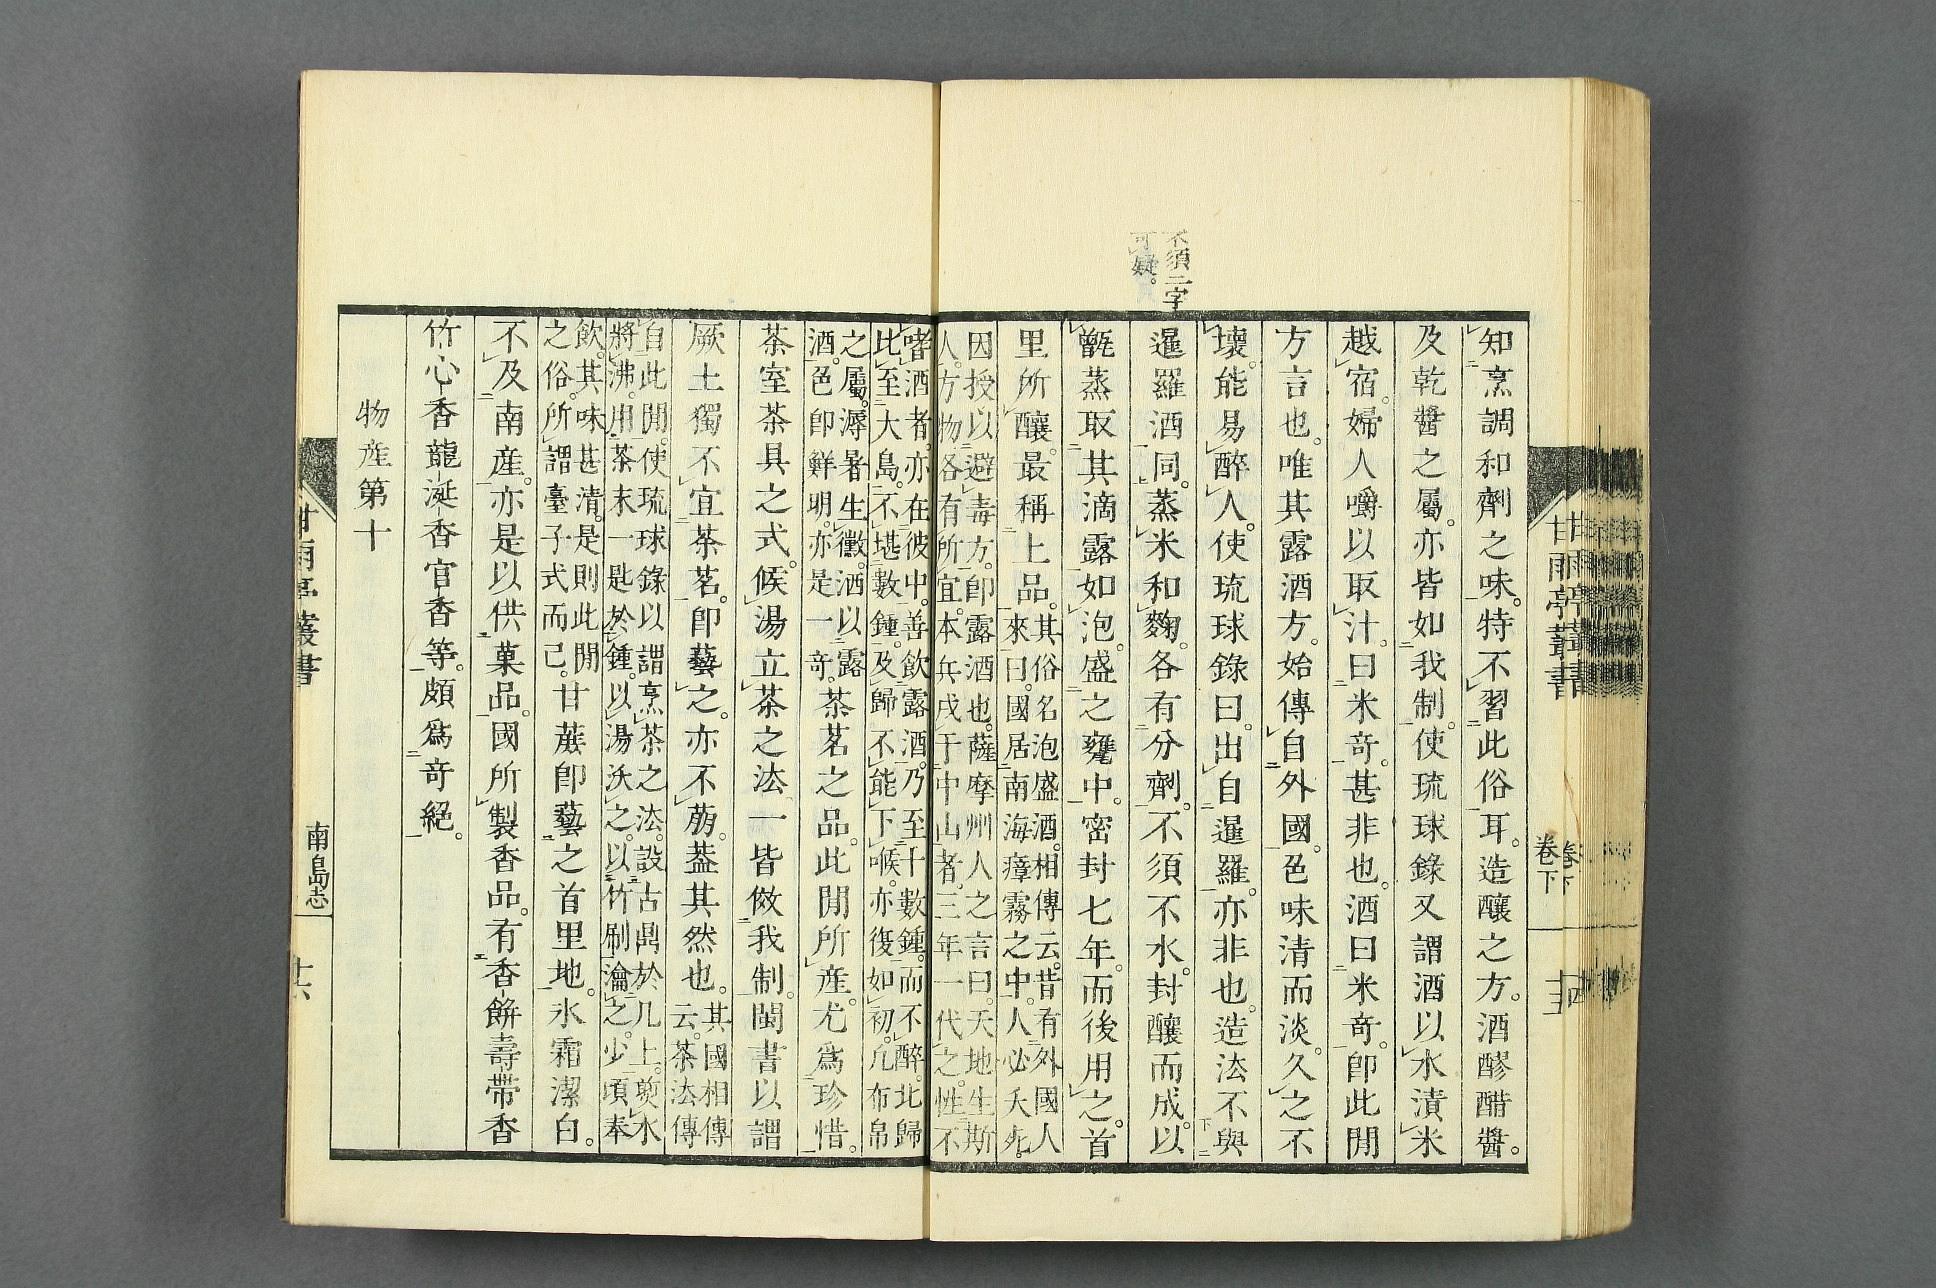 不須二字
可疑。
知烹調和劑之味。特不習此俗耳。造釀之方。酒醪醋醬。
及乾醬之屬。亦皆如我制。使琉球錄又謂酒以水漬米
越宿。婦人嚼以取汁。曰米奇。甚非也。酒曰米奇。卽此閒
方言也。唯其露酒方。始傳自外國。色味清而淡。久之不
壞。能易醉人。使琉球錄曰。出自暹羅。亦非也。造法不與
暹羅酒同。蒸米和麴。各有分劑。不須不水。封釀而成。以
甑蒸取其滴露如泡。盛之甕中。密封七年。而後用之。首
里所釀。最稱上品。
其俗名泡盛酒。相傳云。昔有外國人
來曰。國居南海瘴霧之中。人必夭死。
因授以避毒方。卽露酒也。薩摩州人之言曰。天地生斯
人。方物各有所宜。本兵戍于中山者。三年一代之。性不
嗜酒者。亦在彼中。善飲露酒。乃至十數鍾。而不醉。北歸
比至大島。不堪數鍾。及歸不能下喉。亦復如初。凡布帛
之屬。溽暑生黴。酒以露
酒。色卽鮮明。亦是一奇。
茶茗之品。此閒所產。尤爲珍惜。
茶室茶具之式。候湯立茶之法。一皆倣我制。閩書以謂
厥土獨不宜茶茗。卽藝之。亦不萠。葢其然也。
其國相傳
云。茶法傳
自此閒。使琉球錄以謂烹茶之法。設古鼎於几上。煑水
將沸。用茶末一匙於鍾。以湯沃之。以竹刷瀹之。少頃奉
飲。其味甚清。是則此閒
之俗。所謂臺子式而已。
甘蔗卽藝之首里地。氷霜潔白。
不及南產。亦是以供菓品。國所製香品。有香餠壽帶香
竹心香龍涎香官香等。頗爲奇絕。
物產第十
甘雨亭叢書
南島志
十六
甘雨亭叢書
卷下
十五